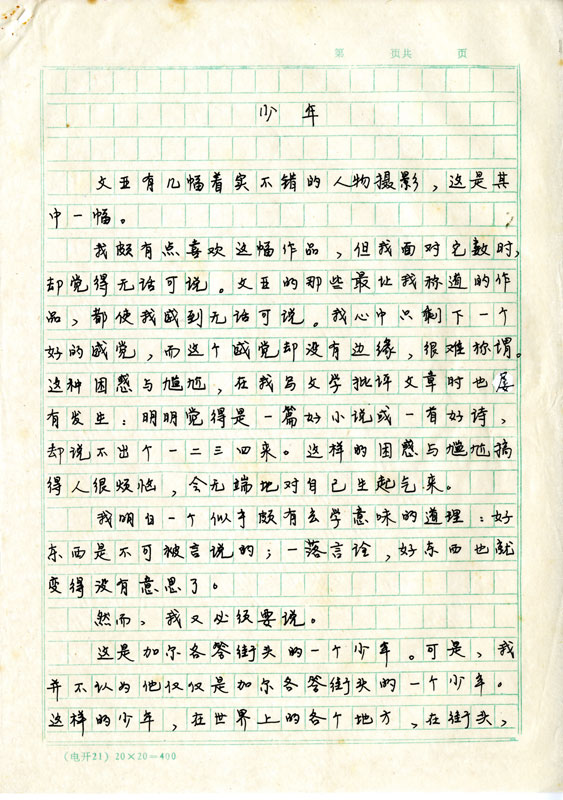 第 页共 页
少年
文亚有几幅着实不错的人物摄影，这是其
中一幅。
我颇有点喜欢这幅作品，但我面对它数时，
却觉得无话可说。文亚的那些最让我称道的作
品，都使我感到无话可说。我心中只剩下一个
好的感觉，而这个感觉却没有边缘，很难称谓。
这种困惑与尴尬，在我写文学批评文章时也屡
有发生：明明觉得是一篇好小说或一首好诗，
却说不出个一二三四来。这样的困惑与尴尬搞
得人很烦恼，会无端地对自己生起气来。
我明白一个似乎颇有玄学意味的道理：好
东西是不可被言说的；一落言诠，好东西也就
变得没有意思了。
然而，我又必须要说。
这是加尔各答街头的一个少年。可是，我
并不认为他仅仅是加尔各答街头的一个少年。
这样的少年，在世界上的各个地方，在街头，
(电开21) 20×20=400